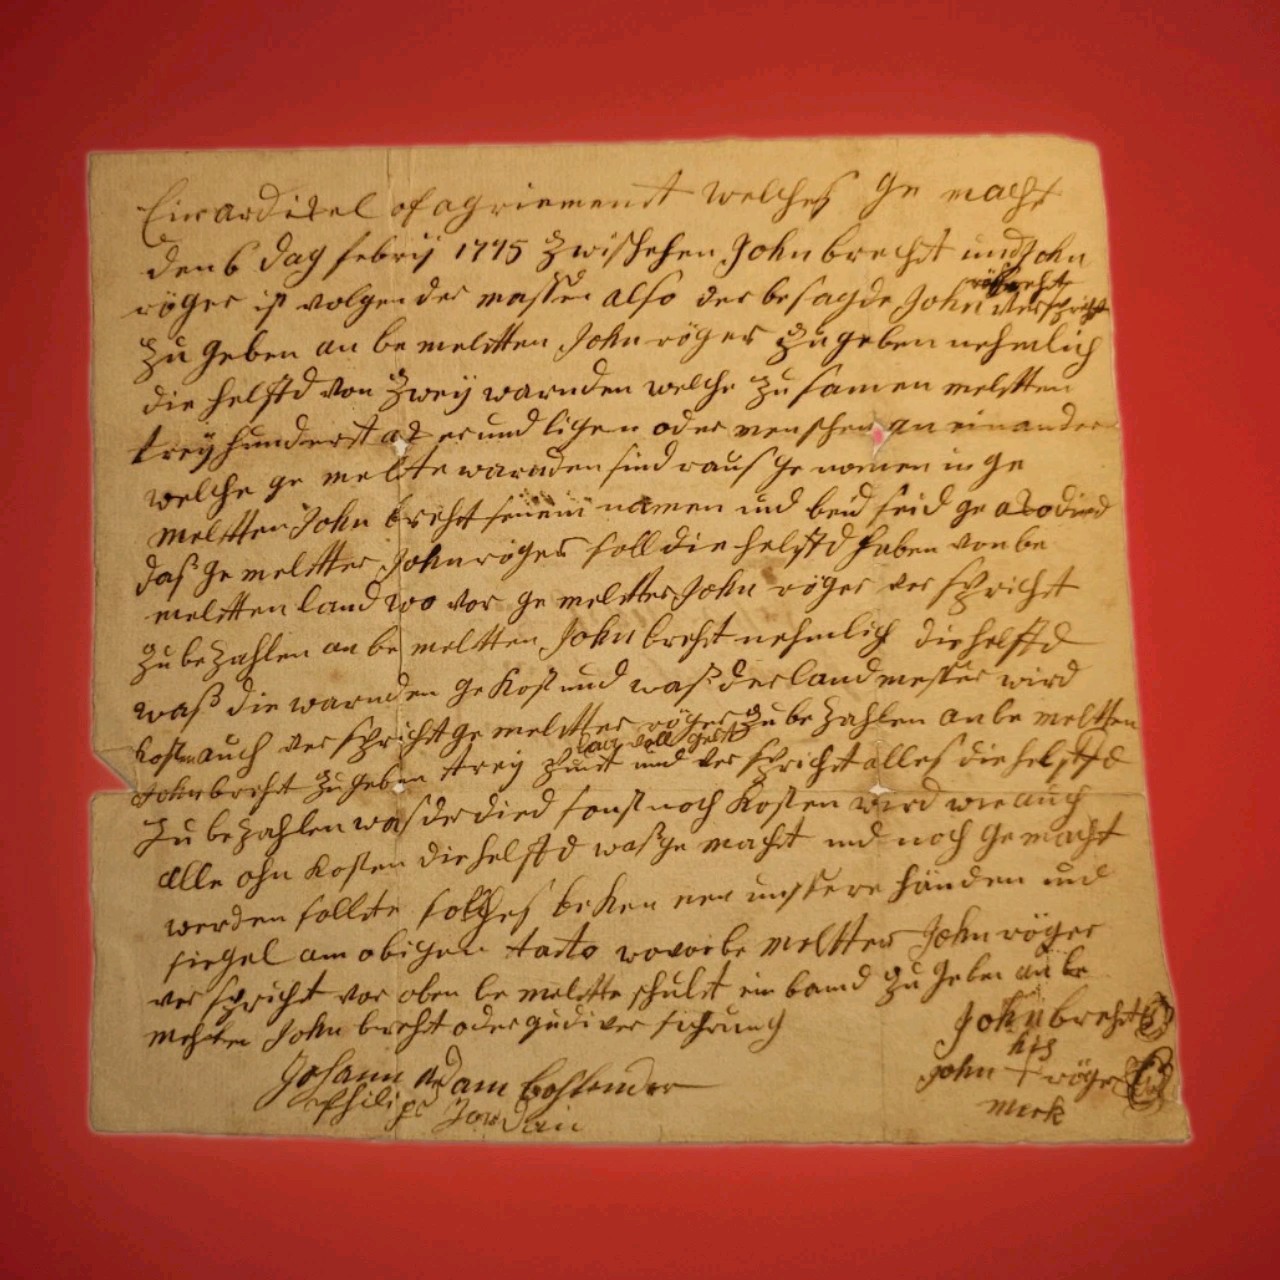 Ein ardikel of agriement welches ge macht
den 6 dag febrij 1775 zwischen John brecht und John
röger ist volgender massen also der besagde John brecht verspricht
zu geben an be meltten John röger zu geben nehmlich
die helftd von zweij warnden welche zu samen meltten
treij hundert ack er und ligen oder an einander
welche ge melte warnden sind raus ge nomen in ge
meltten John brecht seinem namen und beid seid ge
das ge meltter John röger soll die helftd haben von be
meltten land wo vor ge meltter John röger ver spricht
zu bezahlen an be meltten John brecht nehmlich die helftd
waß die warnden ge kost und waß der landmesser wird
kosten auch ver spricht ge meltter röger zu be zahlen an be meltten
John brecht zu geben treij punt und ver spricht alles die helftd
law voll geld
zu bezahlen was der died sonst noch kosten wird wie auch
alle ohn kosten die helftd waß ge macht und noch gemacht
werden sollte solches beken nen unssere händen und
siegel am obigen tacto wovor be meltter John röger
ver spricht vor oben be meltte schult ein band zu geben an be
melten John brecht oder gudi ver sichrung
John brecht
his
John + röger
merk
Johann Adam Bohlender
Philipp Jordan